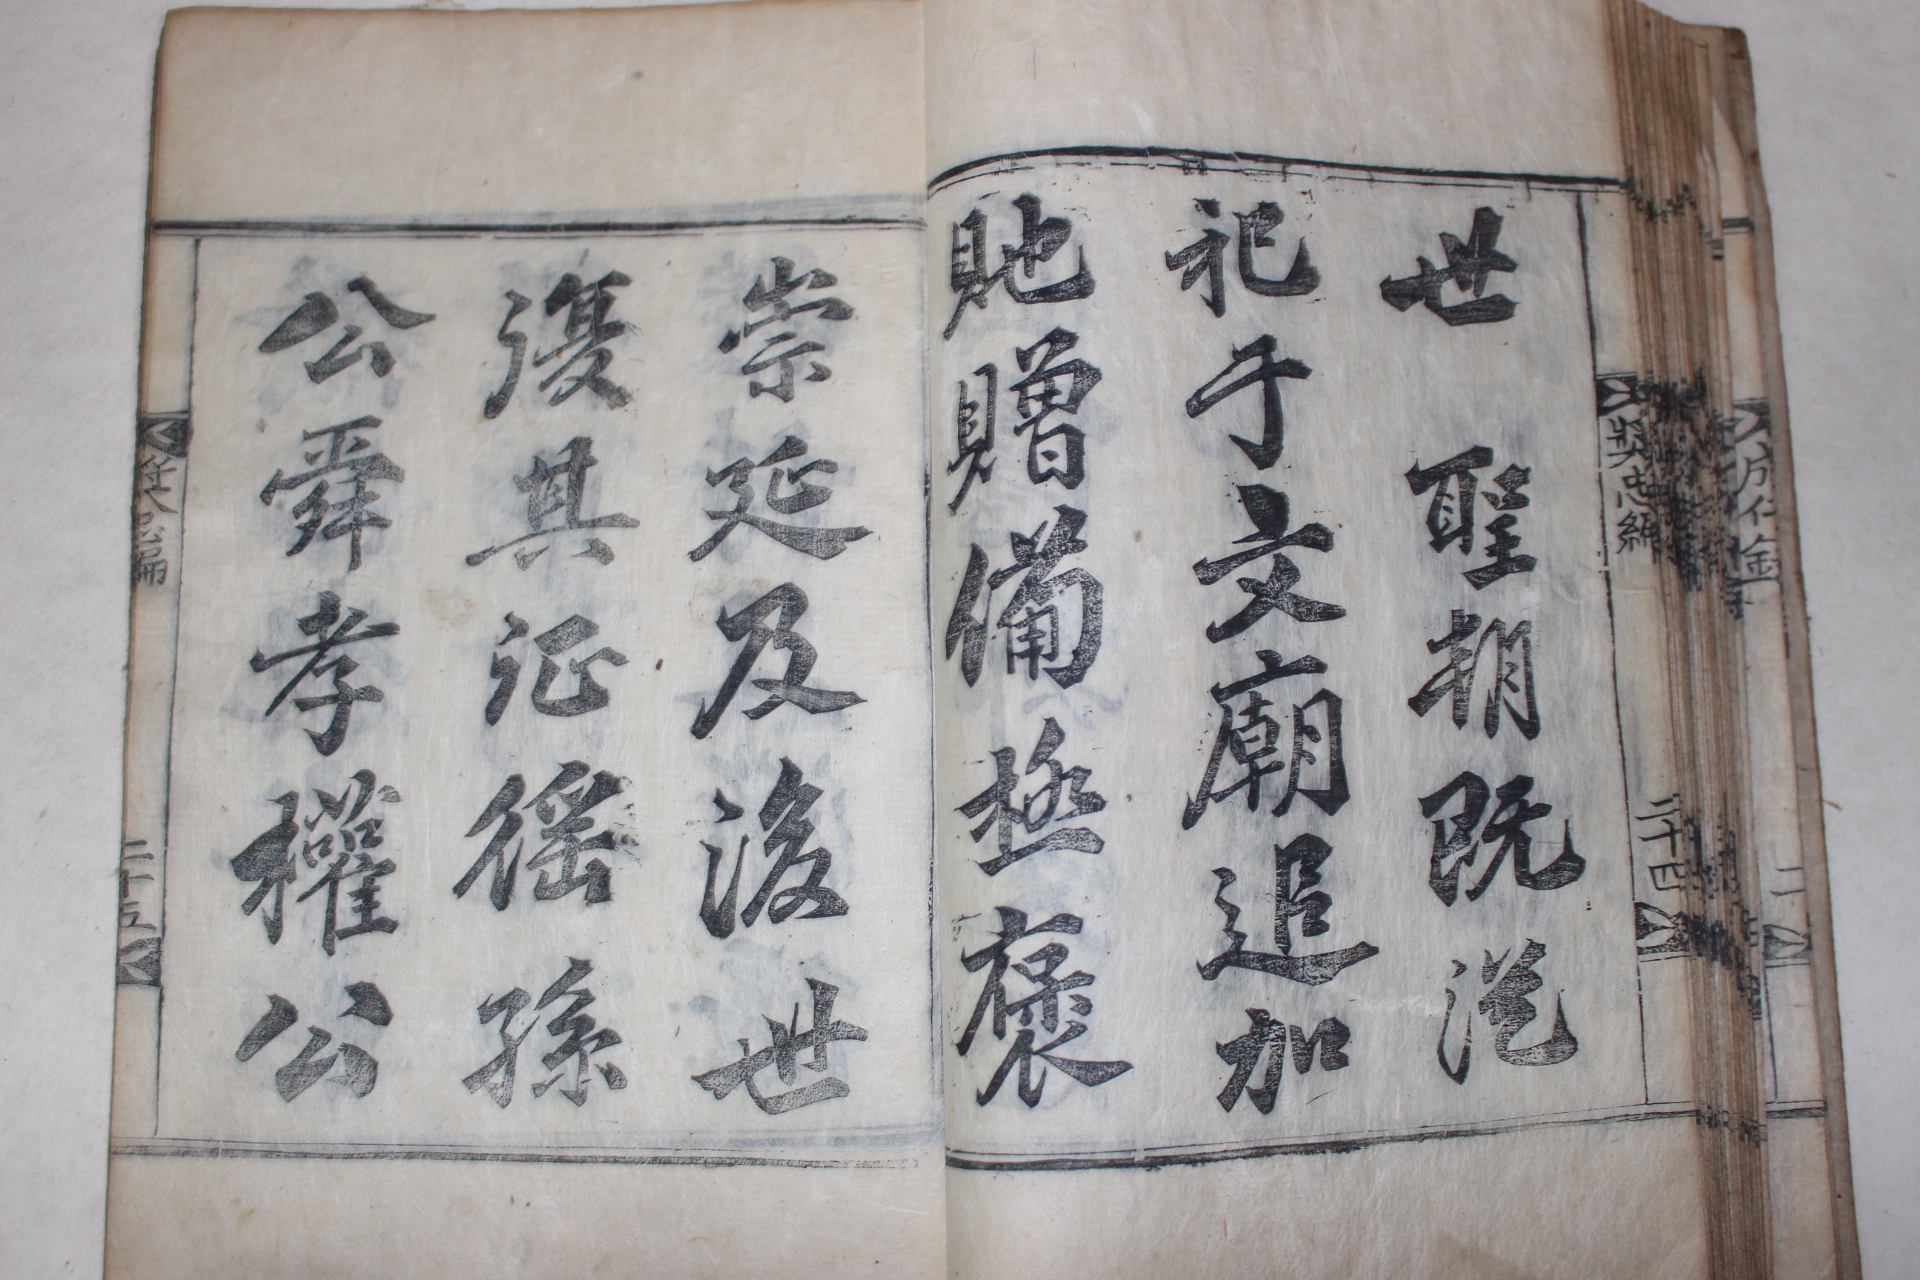 世 聖朝既從
祀于文廟追加
貤贈備極褒
奬忠編
二十四
崇延及後世
復其征徭孫
公舜孝權公
奬忠編
二十五